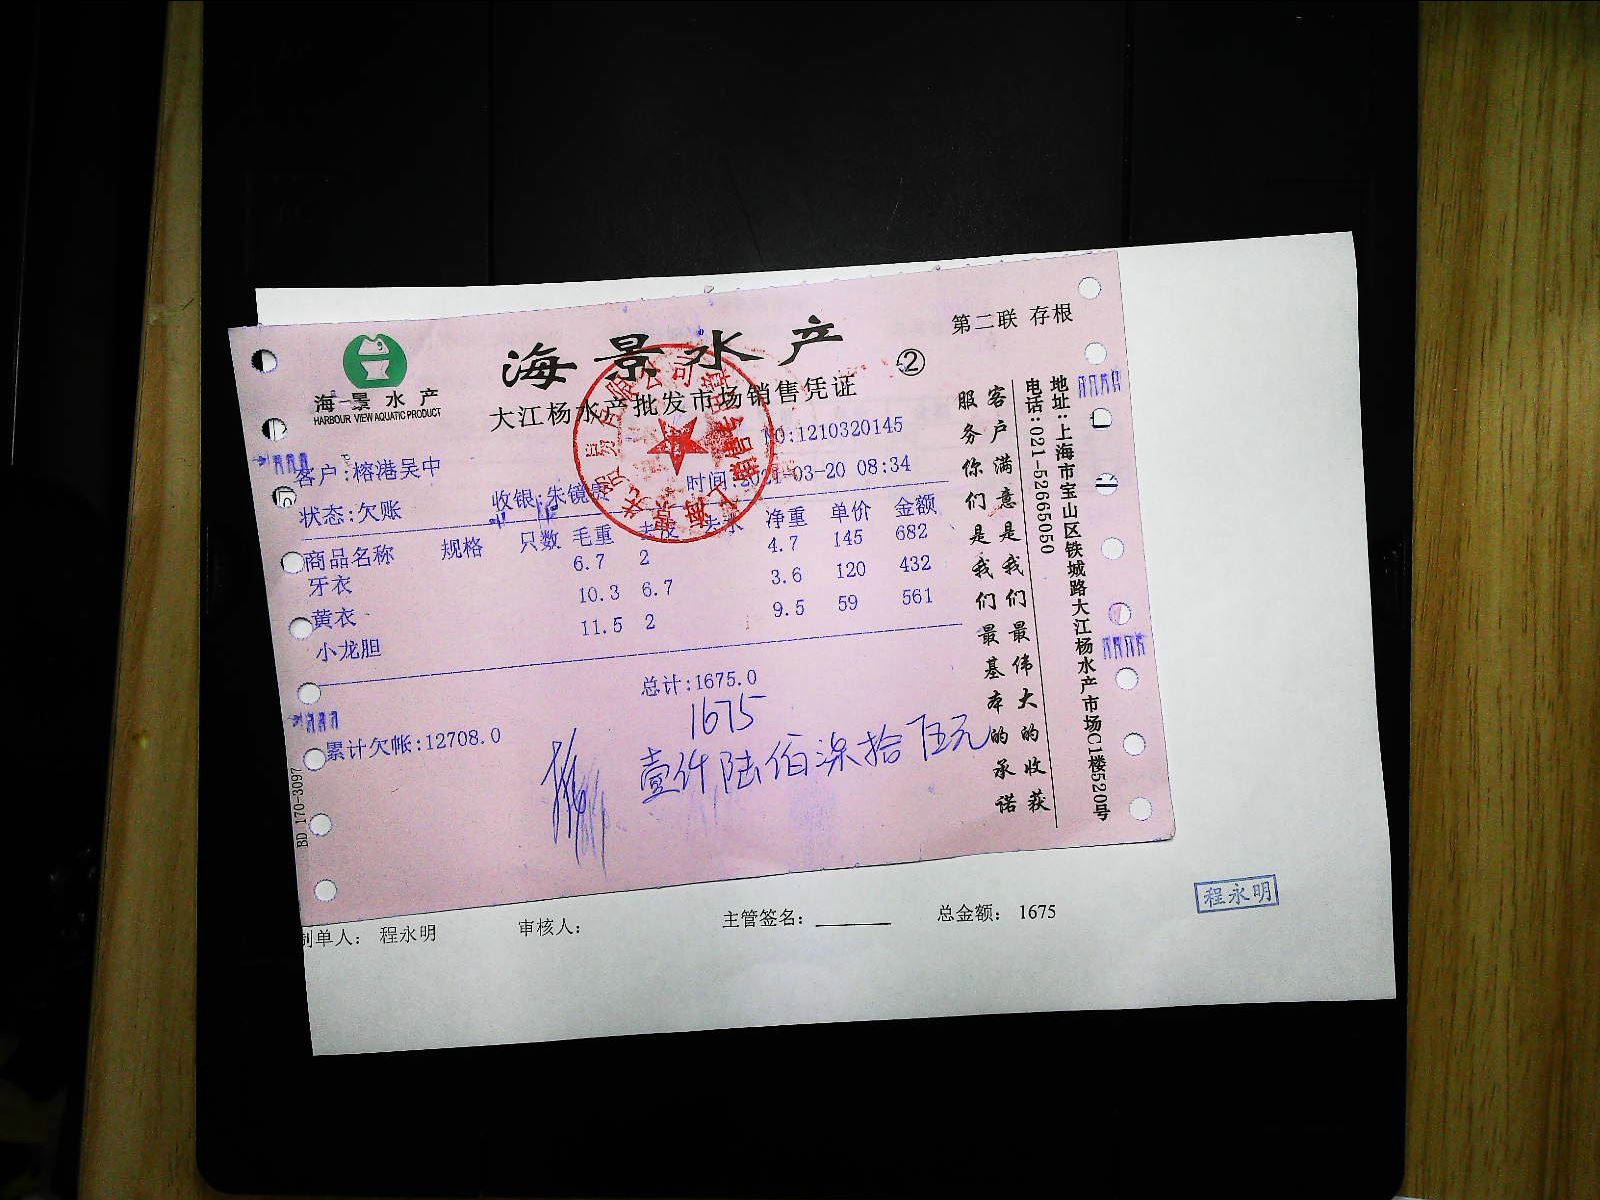 第二联 存根
海景水产
②
海景水产
HARBOUR VIEW AQUATIC PRODUCT
大江杨水产批发市场销售凭证
NO:1210320145
客户:榕港吴中
时间:2021-03-20 08:34
状态:欠账
收银:朱镜
商品名称 规格 只数 毛重 去皮 去水 净重 单价 金额
牙衣 6.7 2 4.7 145 682
黄衣 10.3 6.7 3.6 120 432
小龙胆 11.5 2 9.5 59 561
总计:1675.0
1675
累计欠帐:12708.0
壹仟陆佰柒拾伍元
BD 170-3097
客户满意是我们最伟大的收获
服务你们是我们最基本的承诺
地址:上海市宝山区铁城路大江杨水产市场C1楼520号
电话:021-52665050
制单人: 程永明 审核人: 主管签名: 总金额: 1675
程永明